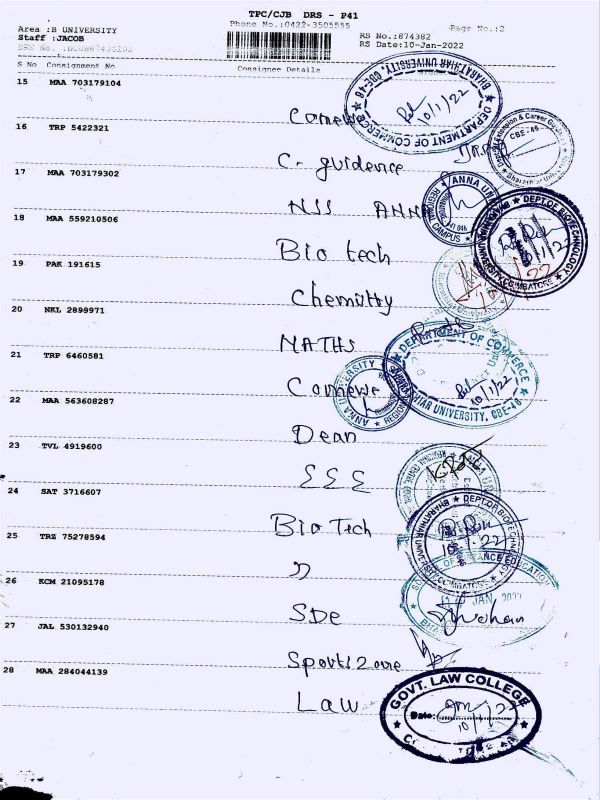 TPC/CJB DRS - P41
Area :B UNIVERSITY
Phone No.:0422-3505555
Page No.:2
Staff :JACOB
RS No.:874382
RS Date:10-Jan-2022
S No Consignment No
Consignee Details
15 MAA 703179104
Comewe
BHARATHIAR UNIVERSITY, CBE-46
DEPARTMENT OF COMMERCE
10/1/22
16 TRP 5422321
C- guidence
& Career
CBE-46
17 MAA 703179302
NSS ANNA
ANNA UNI
REGIONAL CAMPUS
18 MAA 559210506
Bio tech
DEPT.OF BIOTECHNOLOGY
BHARATHIAR UNIVERSITY, COIMBATORE
10/1/22
19 PAK 191615
Chemistty
20 NKL 2899971
MATHS
21 TRP 6460581
Comewe
DEPARTMENT OF COMMERCE
BHARATHIAR UNIVERSITY, CBE-46
10/1/22
22 MAA 563608287
Dean
ANNA UNIVERSITY
REGIONAL
23 TVL 4919600
EEE
24 SAT 3716607
Bio Tech
DEPT.OF BIOTECHNOLOGY
BHARATHIAR UNIVERSITY, COIMBATORE
10.1.22
25 TRZ 75278594
"
26 KCM 21095178
SDe
OF DISTANCE EDUCATION
JAN
27 JAL 530132940
28 MAA 284044139
Law
GOVT. LAW COLLEGE
Date:
10/1/22